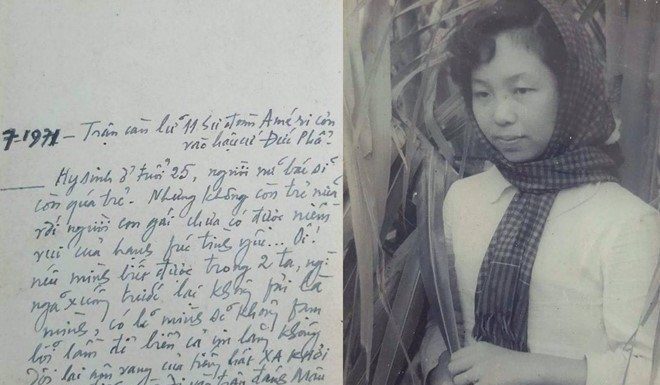 7-1971 - Trận càn lữ 11 Sư đoàn Américan
vào hậu cứ Đức Phổ.
Hy sinh ở tuổi 25, người nữ bác sĩ
còn quá trẻ. Nhưng không còn trẻ nữa
với người con gái chưa có được niềm
vui của hạnh phúc tình yêu... Ôi!
nếu mình biết được trong 2 ta, người
ngã xuống trước lại không phải là
mình, có lẽ mình đã không
lỗi lầm để biển cả im lặng không
dội lại âm vang của tiếng hát XA KHƠI